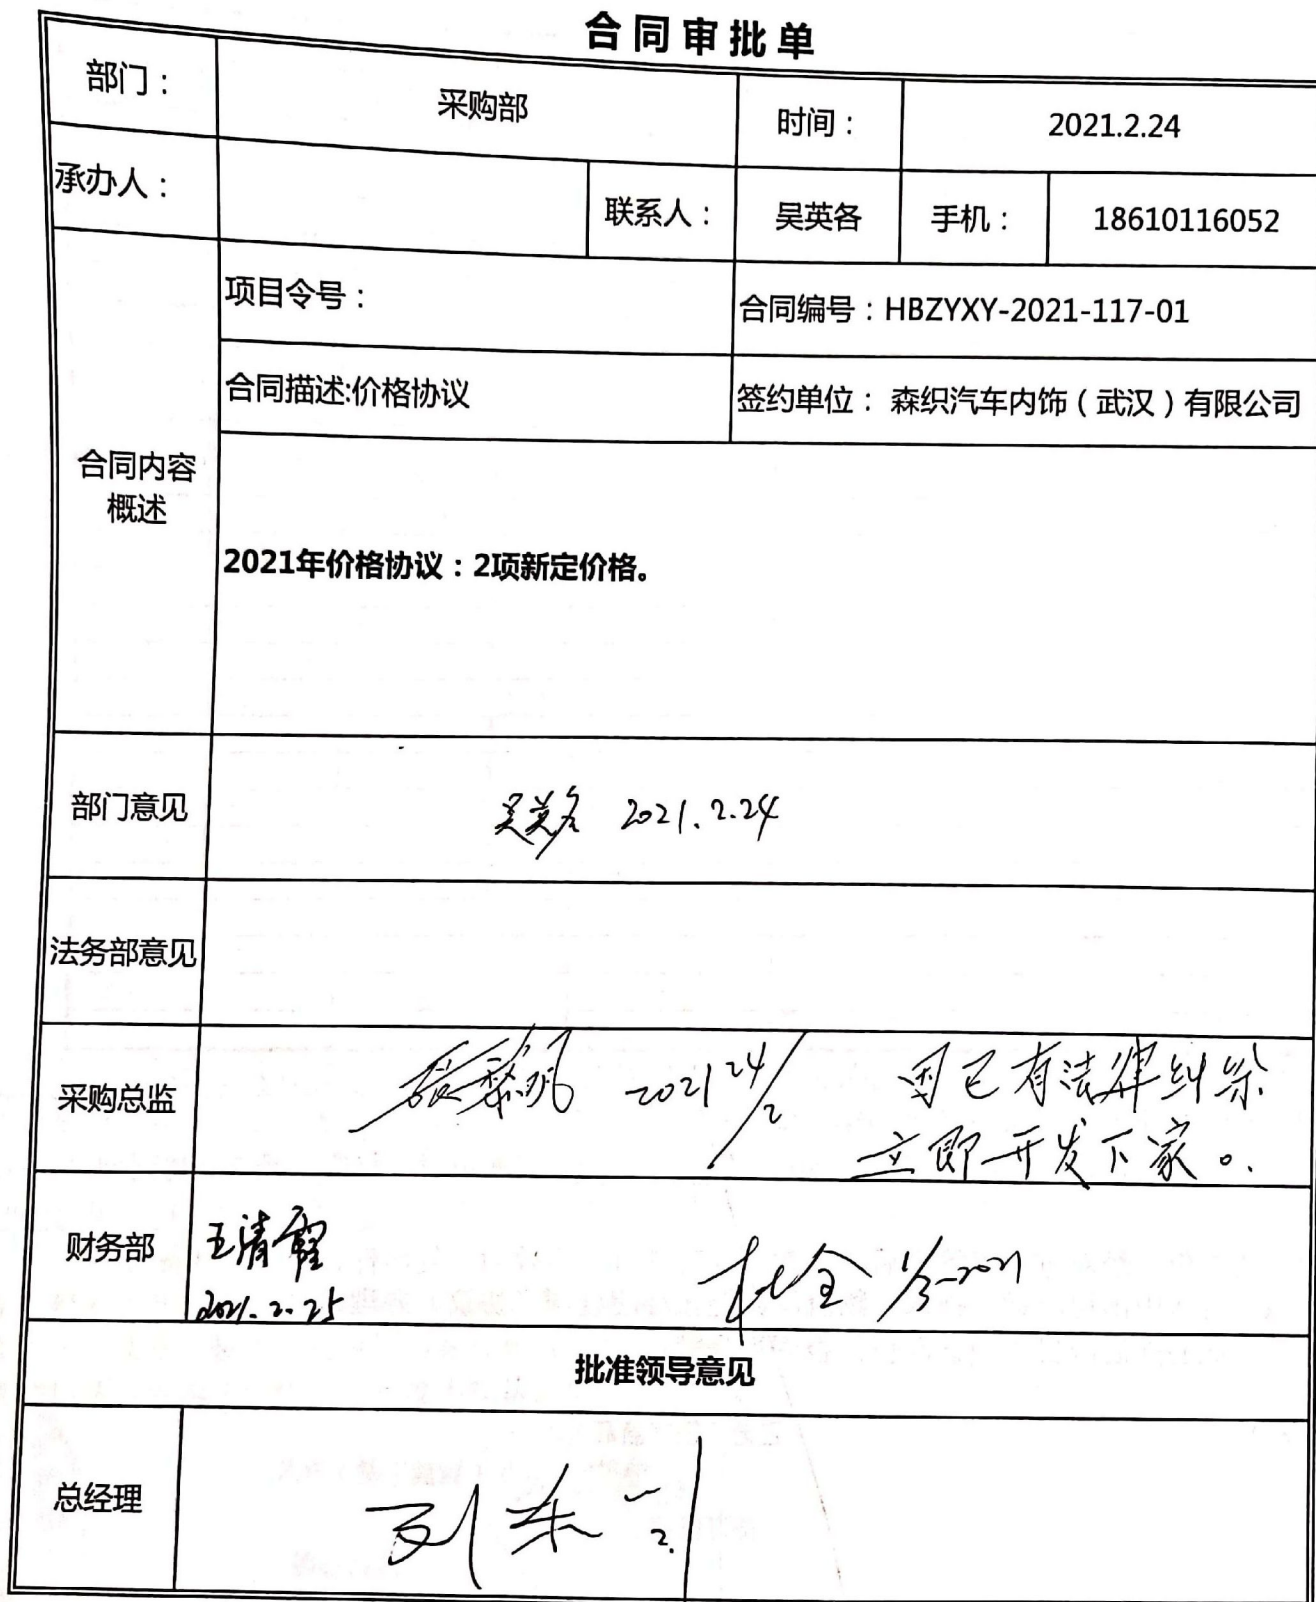 合同审批单
部门：
采购部
时间：
2021.2.24
承办人：
联系人：
吴英各
手机：
18610116052
合同内容
概述
项目令号：
合同编号：HBZYXY-2021-117-01
合同描述:价格协议
签约单位： 森织汽车内饰（武汉）有限公司
2021年价格协议：2项新定价格。
部门意见
吴英各 2021.2.24
法务部意见
采购总监
2021 24/2
因已有法律纠纷
立即开发下家。
财务部
王清
2021.2.25
杜全 1/3-2021
批准领导意见
总经理
刘东